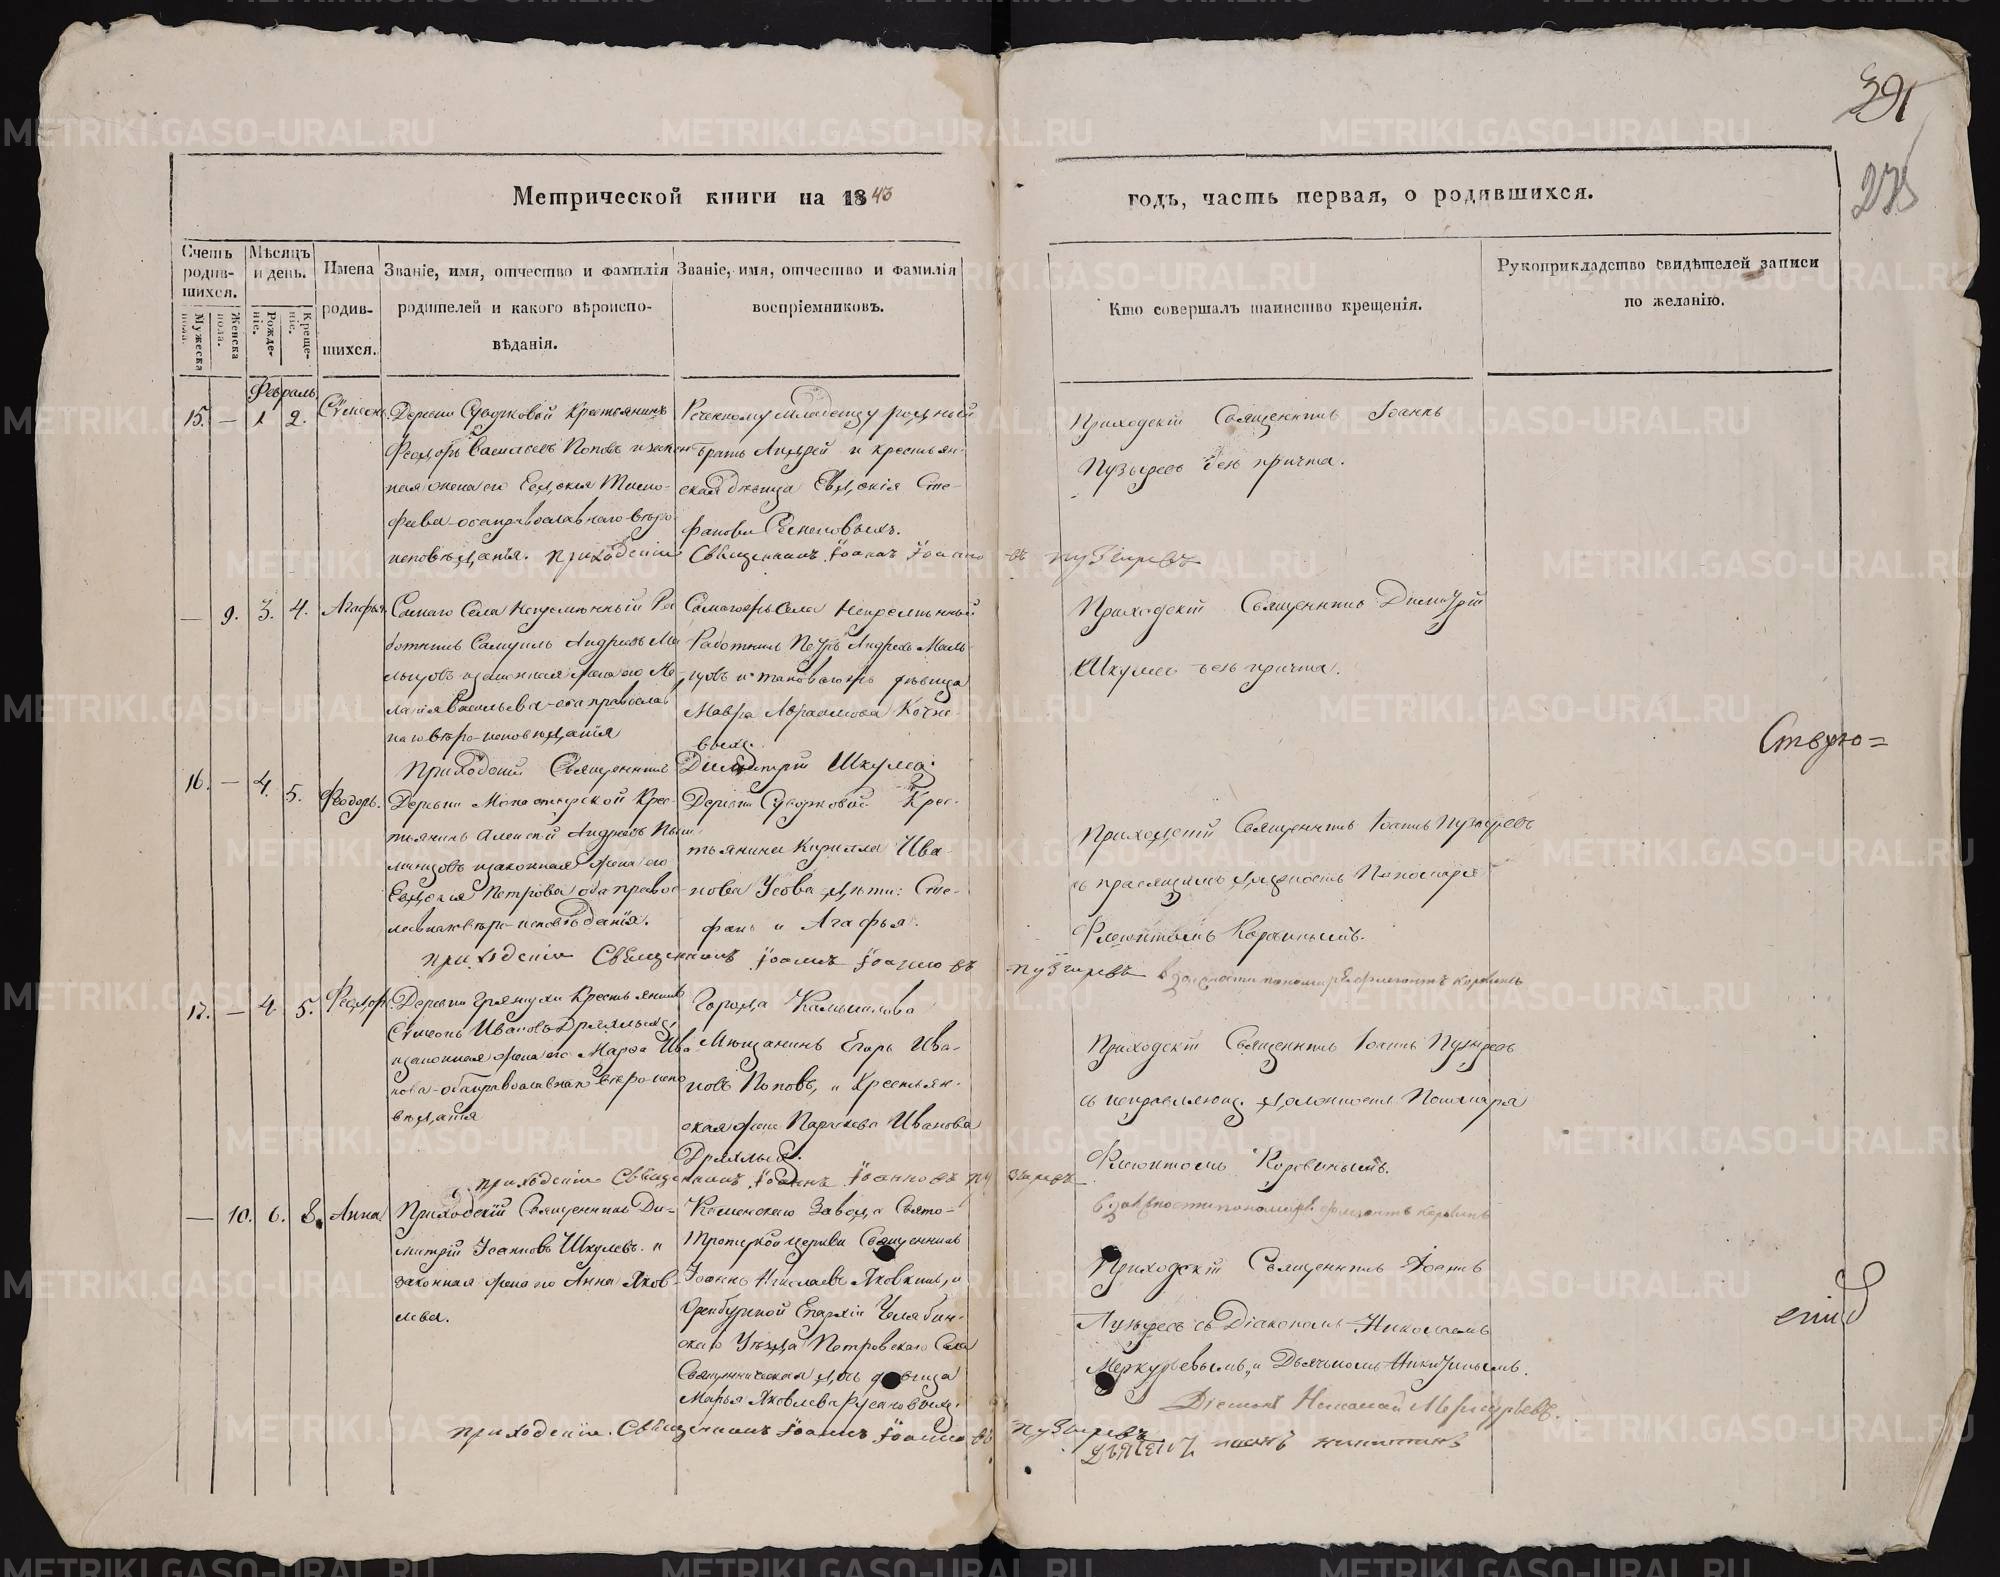 391
275
Метрической книги на 1843
годъ, часть первая, о родившихся.
Счетъ родив-шихся.
Мужеска пола.
Женска пола.
Мѣсяцъ и день.
Рожде-ніе.
Креще-ніе.
Имена
родив-
шихся.
Званіе, имя, отчество и фамилія
родителей и какого вѣроиспо-
вѣданія.
Званіе, имя, отчество и фамилія
воспріемниковъ.
Кто совершалъ таинство крещенія.
Рукоприкладство свидѣтелей записи
по желанію.
Февраль
15. — 1 2. Стѵменъ
Деревни Суворковой Крестьянинъ
Феодоръ Васильевъ Поповъ и закон
ная жена его Евдокія Тимо-
феева оба православнаго вѣро
исповѣданія.
Реченному младенцу родный
братъ Андрей и крестьян-
ская дѣвица Евдокія Сте-
фанова
Приходскій Священникъ Іоаннъ
Пузыревъ безъ причта.
приходскіи Священникъ Іоаннъ Іоанновъ пузыревъ
— 9. 3. 4. Агафья
Самаго Села Непремѣнный Ра
ботникъ Самуилъ Андреевъ Ма
льцовъ изаконная жена его Ме
ланія Васильева оба православ
наго вѣро-исповѣданія
Самагожъ Села Непремѣнный
Работникъ Петръ Андреевъ Маль
цовъ и таковагожъ дѣвица
Мавра Авраамова Кочне-
выхъ.
Приходскій Священникъ Димитрій
Шкулевъ безъ причта.
Приходскій Священникъ Димитрій Шкулевъ
16. — 4. 5. Феодоръ.
Деревни Монастырской Крес-
тьянинъ Алексей Андреевъ
изаконная жена его
Евдокия Петрова оба право
славнаго вѣро-исповѣданія.
Деревни Суворковой Крес-
тьянина Кирилла Ива-
нова Усова дѣти: Сте-
фанъ и Агафья.
Приходскій Священникъ Іоаннъ Пузыревъ
съ правящимъ должность Пономаря
Флегонтомъ Коровинымъ.
приходскіи Священникъ Іоаннъ Іоанновъ пузыревъ
в должности пономаря флегонтъ коровинъ
17. — 4 5. Феодоръ
Деревни Грязнухи Крестьянинъ
Стѵмеонъ Ивановъ Дряхлыхъ,
изаконная жена его Марѳа Ива-
нова оба православнаго вѣро-испо
вѣданія
Города Камышлова
Мѣщанинъ Егоръ Ива-
новъ Поповъ, и Крестьян-
ская жена Параскева Иванова
Дряхлыхъ.
Приходскій Священникъ Іоаннъ Пузыревъ
съ исправляющ. должность Пономаря
Флегонтомъ Коровинымъ.
приходскіи Священникъ Іоаннъ Іоанновъ пузыревъ
в должности пономаря флегонтъ коровинъ
— 10. 6. 8. Анна
Приходскій Священникъ Ди-
митрій Іоанновъ Шкулевъ и
законная жена его Анна Яков-
лева.
Каменскаго Завода Свято-
Троицкой церкви Священникъ
Іоаннъ Николаевъ Яковкинъ, и
Оренбургской Епархіи Челябин-
скаго Уѣзда Петровскаго Села
Священническая дочь дѣвица
Марья Яковлева Русановыхъ.
Приходскій Священникъ Іоаннъ
Пузыревъ съ Діакономъ Николаемъ
Меркурьевымъ и Дьячкомъ Никитинымъ.
Діаконъ Николай Меркурьевъ.
приходскіи Священникъ Іоаннъ Іоанновъ пузыревъ
никитинъ